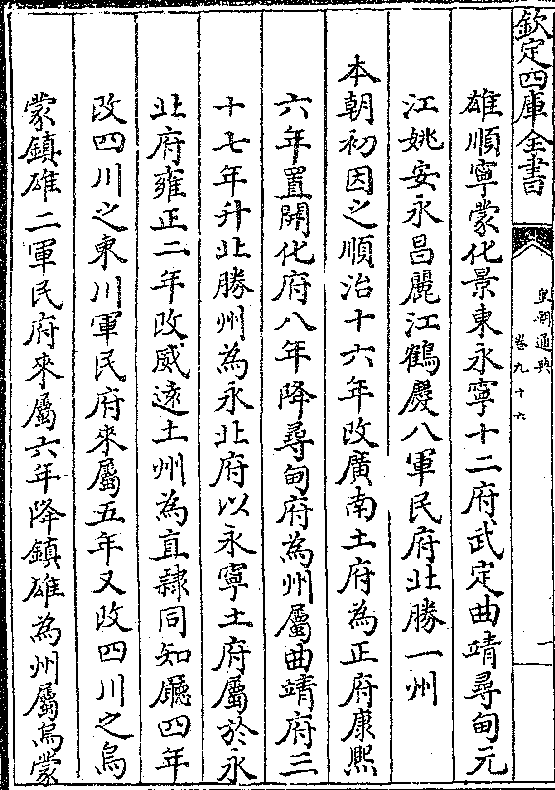 欽定四庫全書
皇朝通典
卷九十六
一
雄順寧蒙化景東永寧十二府武定曲靖尋甸元
江姚安永昌麗江鶴慶八軍民府北勝一州
本朝初因之順治十六年改廣南土府為正府康熙
六年置開化府八年降尋甸府為州屬曲靖府三
十七年升北勝州為永北府以永寧土府屬於永
北府雍正二年改威遠土州為直隸同知廳四年
改四川之東川軍民府來屬五年又改四川之烏
蒙鎮雄二軍民府來屬六年降鎮雄為州屬烏蒙